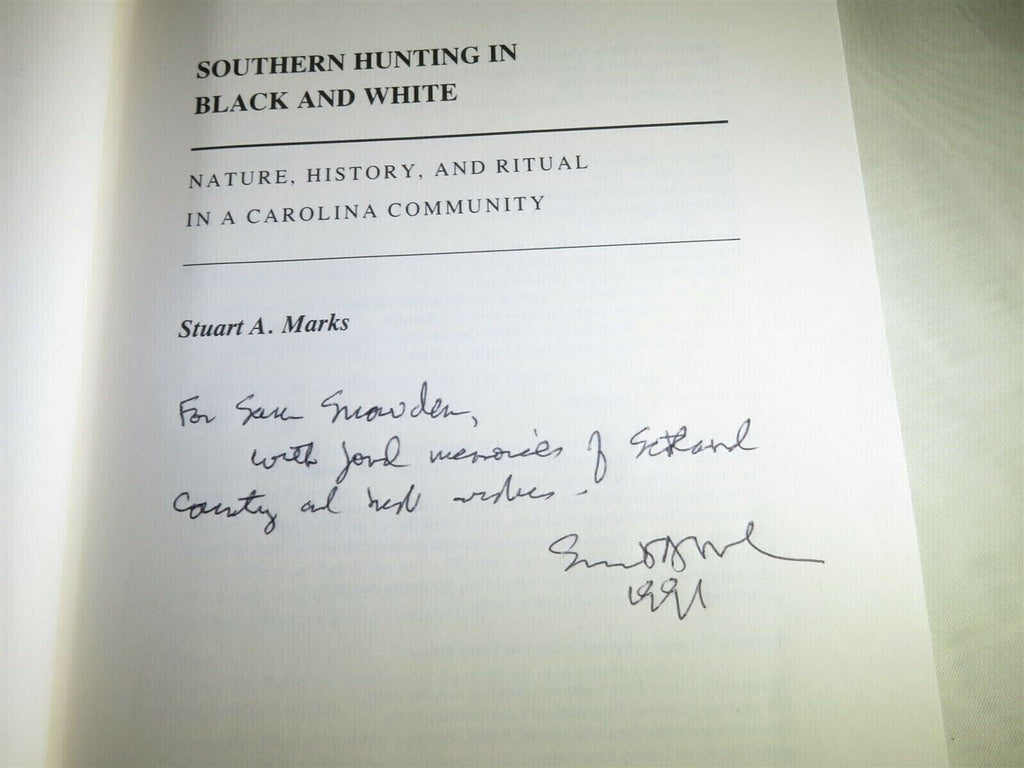 SOUTHERN HUNTING IN
BLACK AND WHITE
NATURE, HISTORY, AND RITUAL
IN A CAROLINA COMMUNITY
Stuart A. Marks
For Sam Snowden,
with fond memories of Scotland
County and best wishes -
Stuart A Marks
1991